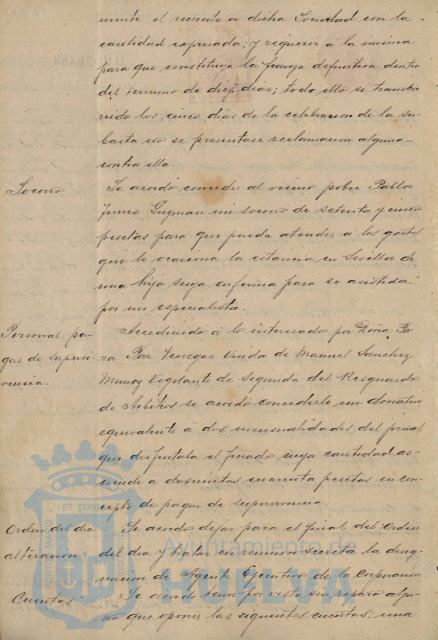 mente el remate a dicha Sociedad con la
cantidad expresada; y requerir á la misma
para que constituya la fianza definitiva dentro
del termino de diez dias; todo ello si transcu
rrido los cinco dias de la celebracion de la su
basta no se presentase reclamacion alguna
contra ella.
Socorro
Se acordó conceder al vecino pobre Pablo
Guzman un socorro de setenta y cinco
pesetas para que pueda atender a los gastos
que le ocasiona la estancia en Sevilla de
una hija suya enferma para ser asistida
por un especialista.
Personal pa
gas de supervi
vencia.
Accediendo á lo interesado por Doña
Paz Venegas Viuda de Manuel Sanchez
Munoz Vigilante de segunda del Resguardo
de Arbitrios se acordó concederle un donativo
equivalente á dos mensualidades del jornal
que disfrutaba el finado cuya cantidad as
ciende a doscientas cuarenta pesetas en con
cepto de pagas de supervivencia.
Orden del dia
alteracion
Se acordó dejar para el final del Orden
del dia y tratar en reunion secreta la desig
nacion de Agente Ejecutivo de la Corporacion
Cuentas
Se acordó sin reparo algu
no que oponer las siguientes cuentas, una
Ayuntamiento de
HUELVA